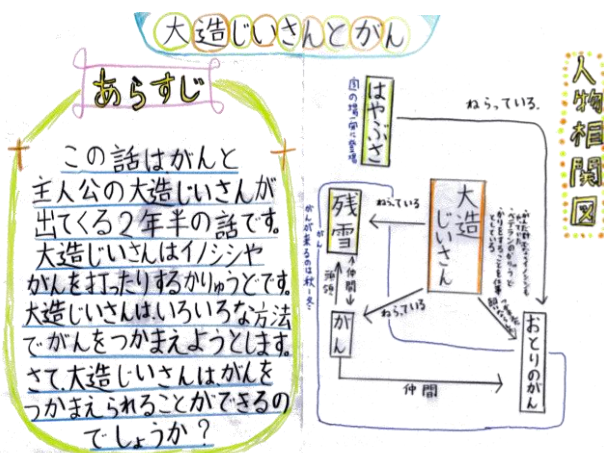 大造じいさんとがん
あらすじ
この話は、がんと
主人公の大造じいさんが
出てくる2年半の話です。
大造じいさんはイノシシや
がんを打ったりするかりゅうどです。
大造じいさんは、いろいろな方法
でがんをつかまえようとします。
さて、大造じいさんは、がんを
つかまえられることができるの
でしょうか？
人物相関図
はやぶさ
ねらっている。
大造じいさん
ねらっている
残雪
がんが来るのは秋〜冬
仲間
頭領
ねらっている
がん
おとりのがん
仲間